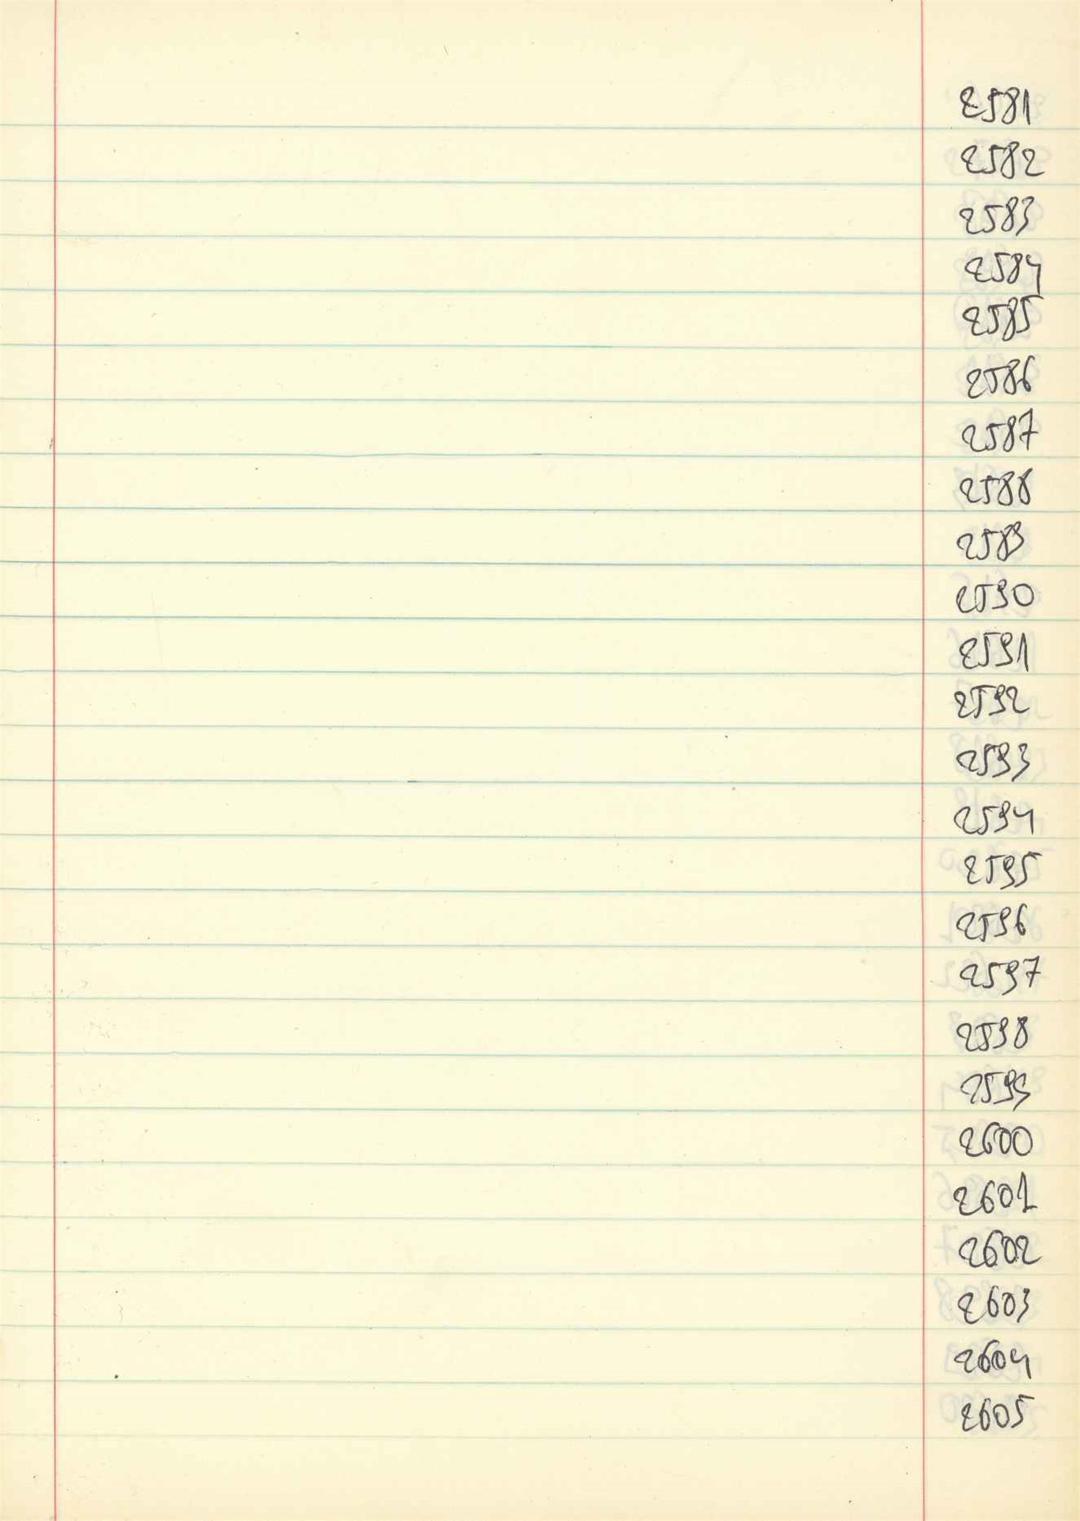 2581
2582
2583
2584
2585
2586
2587
2588
2589
2590
2591
2592
2593
2594
2595
2596
2597
2598
2599
2600
2601
2602
2603
2604
2605